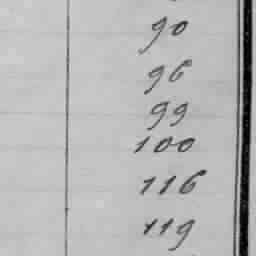 90
96
99
100
116
119